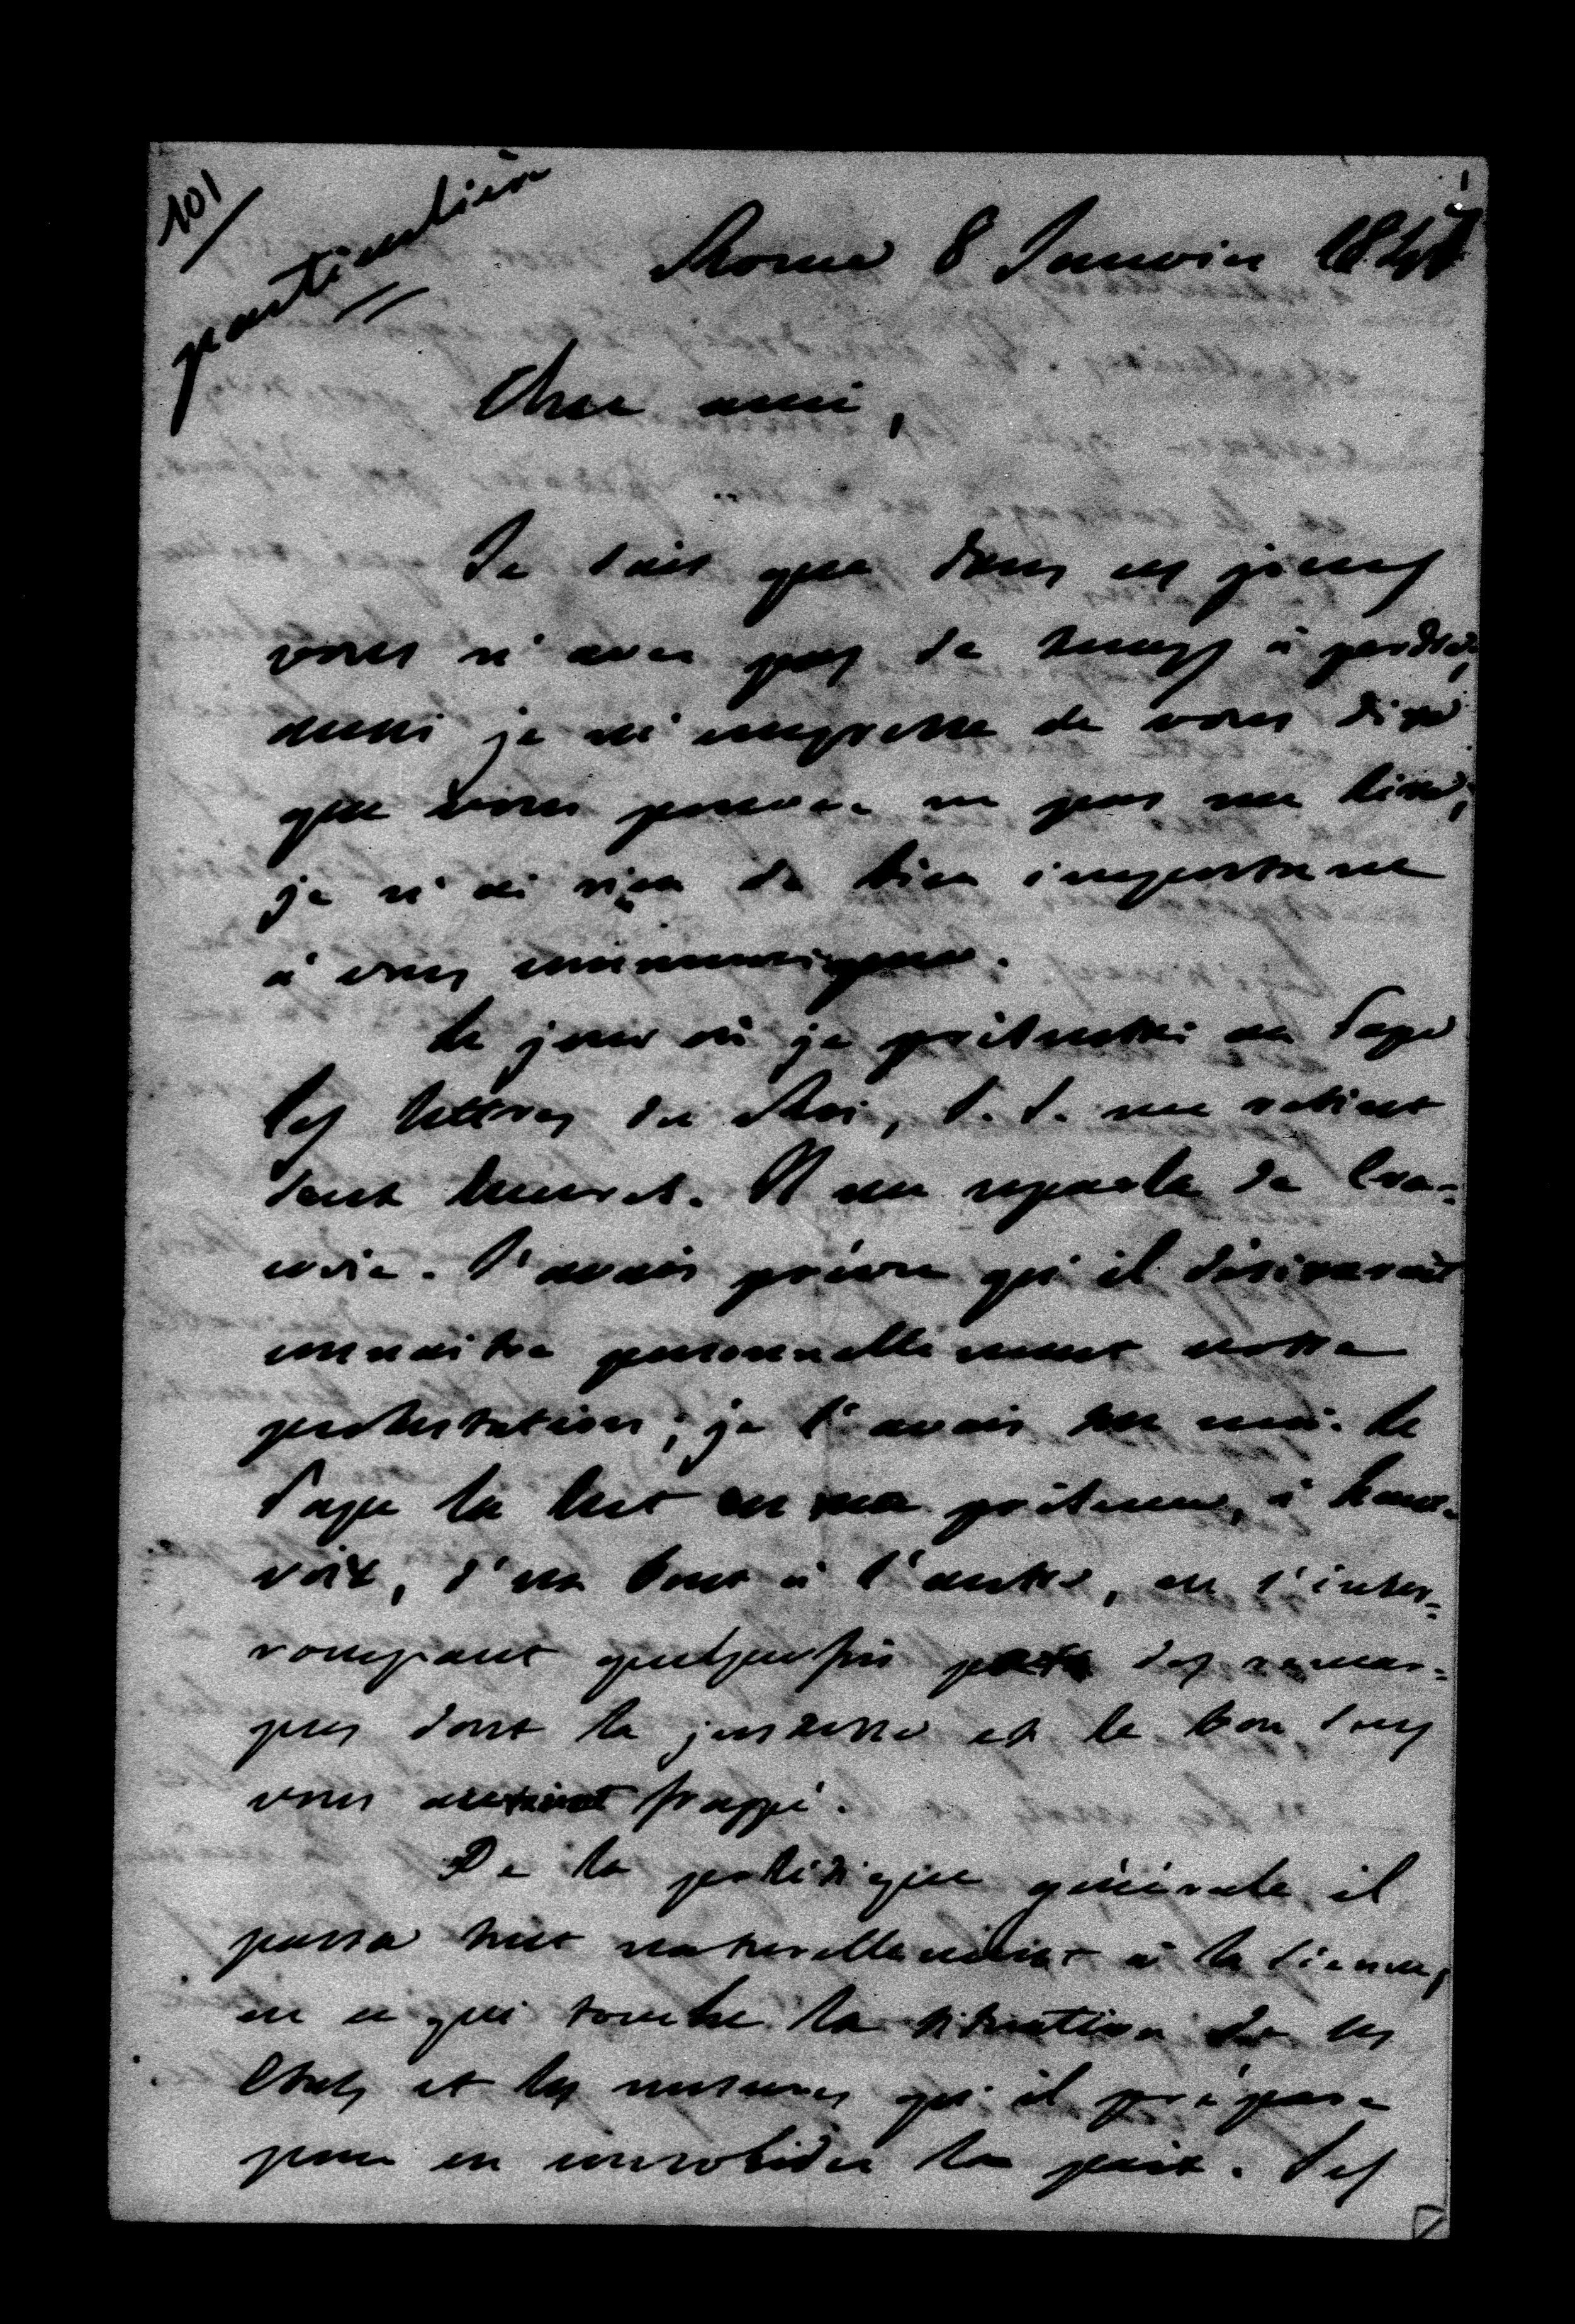 101
particulière
Rome 8 Janvier 1847
Cher ami,
Je sais que dans ces jours
vous n'avez pas de temps à perdre,
aussi je m'empresse de vous dire
que vous pouvez ne pas me lire;
je n'ai rien de bien important
à vous communiquer.
Le jour où je présentai au Pape
les lettres du Roi, S. S. me retint
deux heures. Il me reparla de Cra=
covie. J'avais prévu qu'il désirerait
connaitre personnellement notre
protestation; je l'avais sur moi. Le
Pape la lut en ma présence, à haute
voix, d'un bout à l'autre, en s'inter=
rompant quelquefois par des remar=
ques dont la justesse et le bon sens
vous auraient frappé.
De la politique générale, il
passa tout naturellement à la sienne,
en ce qui touche la situation de ses
Etats et les mesures qu'il prépare
pour en consolider la paix. Ses